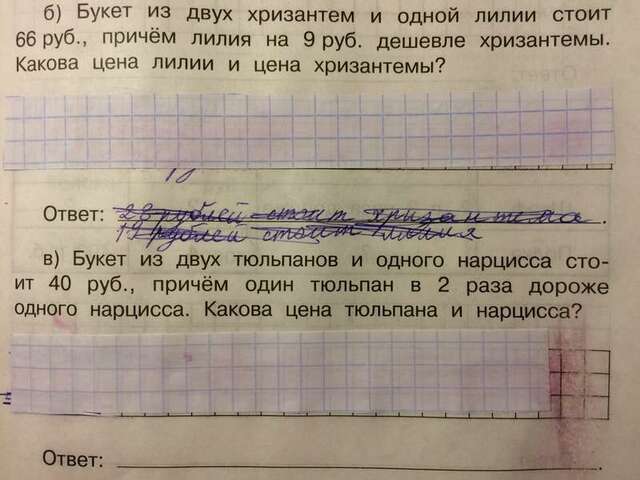 б) Букет из двух хризантем и одной лилии стоит
66 руб., причём лилия на 9 руб. дешевле хризантемы.
Какова цена лилии и цена хризантемы?
10
Ответ: 23 рублей стоит хризантема.
рублей стоит лилия
в) Букет из двух тюльпанов и одного нарцисса сто-
ит 40 руб., причём один тюльпан в 2 раза дороже
одного нарцисса. Какова цена тюльпана и нарцисса?
Ответ: